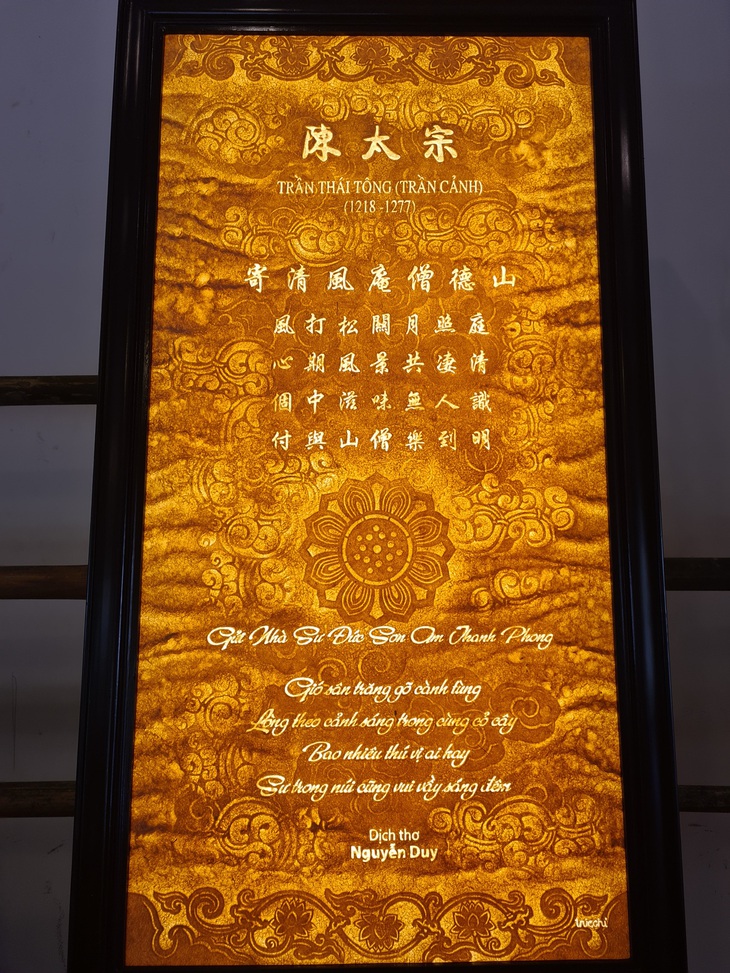 陳太宗
TRẦN THÁI TÔNG (TRẦN CẢNH)
(1218 -1277)
寄清風庵僧德山
風打松關月照庭
心期風景共凄清
個中滋味無人識
付與山僧樂到明
Gửi Nhà Sư Đức Sơn Am Thanh Phong
Gió sân trăng gõ cành tùng
Lòng theo cảnh sáng trong cùng cỏ cây
Bao nhiêu thú vị ai hay
Sư trong núi cũng vui vầy sáng đêm
Dịch thơ
Nguyễn Duy
trucchi